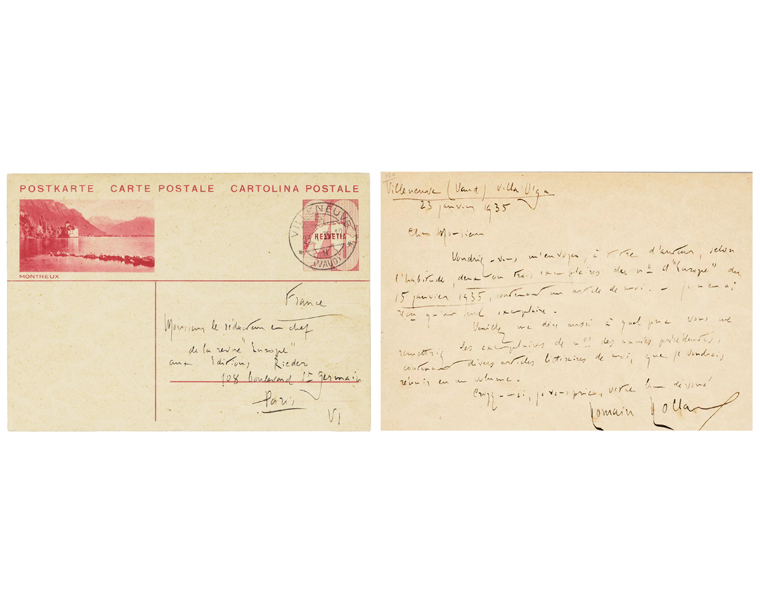 POSTKARTE CARTE POSTALE CARTOLINA POSTALE
VILLENEUVE
HELVETIA
(VAUD)
MONTREUX
France
Monsieur le rédacteur en chef
de la revue "Europe"
aux Editions Rieder
108 boulevard St Germain
Paris
VI
Villeneuve (Vaud) villa Olga
23 janvier 1935
Cher Monsieur
Voudriez-vous m'envoyer, à titre d'auteur, selon
l'habitude, deux ou trois exemplaires des nos d'"Europe" du
15 janvier 1935, contenant un article de moi. - Je n'en ai
qu'un seul exemplaire.
Veuillez me dire aussi à quel prix vous me
remettriez des exemplaires de nos des années précédentes,
contenant divers articles littéraires de moi, que je voudrais
réunir en un volume.
Croyez-moi, je vous prie, votre bien dévoué
Romain Rolland